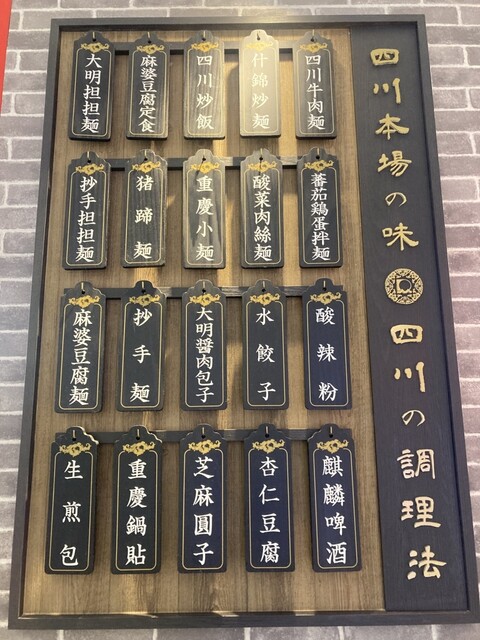 四川本場の味 四川の調理法
四川牛肉麺
什錦炒麺
四川炒飯
麻婆豆腐定食
大明担担麺
蕃茄鶏蛋拌麺
酸菜肉絲麺
重慶小麺
猪蹄麺
抄手担担麺
酸辣粉
水餃子
大明醤肉包子
抄手麺
麻婆豆腐麺
麒麟啤酒
杏仁豆腐
芝麻圓子
重慶鍋貼
生煎包